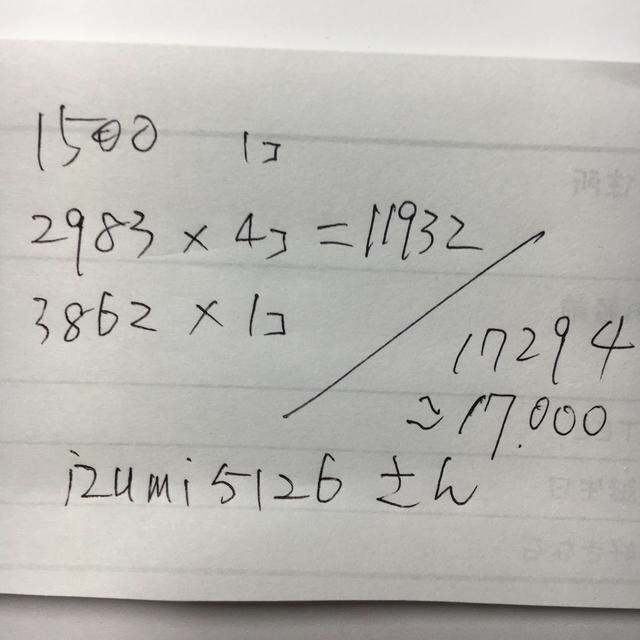 1500 1コ
2983 × 4コ = 11932
3862 × 1コ
17294
≃ 17.000
izumi5126 さん